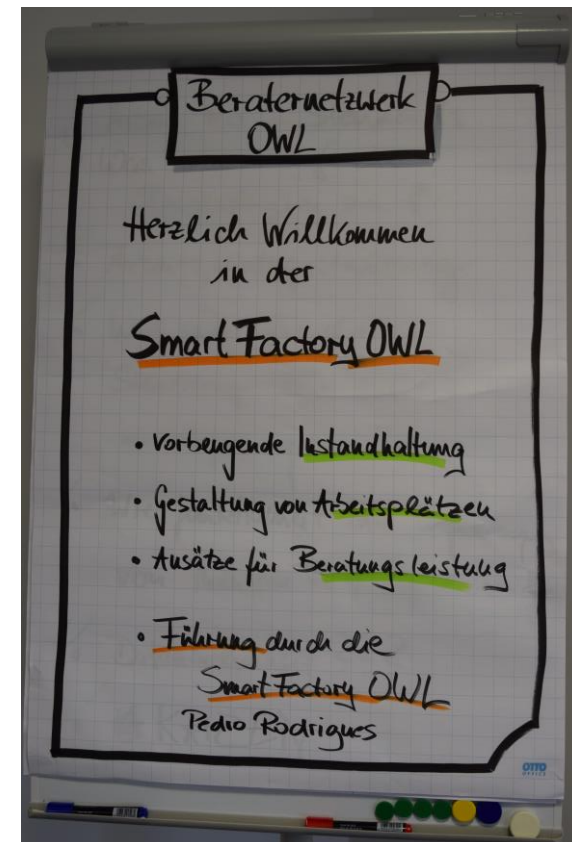 Beraternetzwerk
OWL
Herzlich Willkommen
in der
Smart Factory OWL
• Vorbeugende Instandhaltung
• Gestaltung von Arbeitsplätzen
• Ansätze für Beratungsleistung
• Führung durch die
Smart Factory OWL
Pedro Rodrigues
OTTO
OFFICE